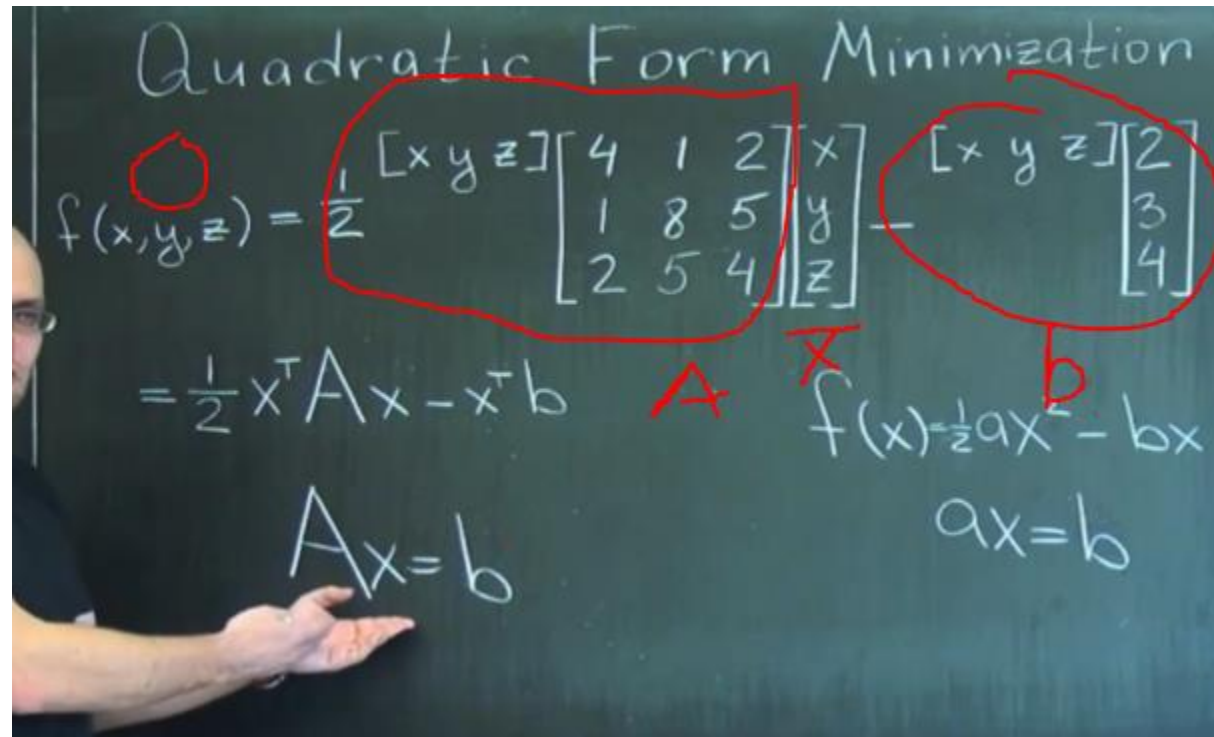 Quadratic Form Minimization
f(x,y,z) = 1/2 [x y z] [4 1 2] [x] − [x y z] [2]
[1 8 5] [y] [3]
[2 5 4] [z] [4]
A x b
= 1/2 xᵀAx − xᵀb
f(x) = 1/2 ax² − bx
Ax = b
ax = b